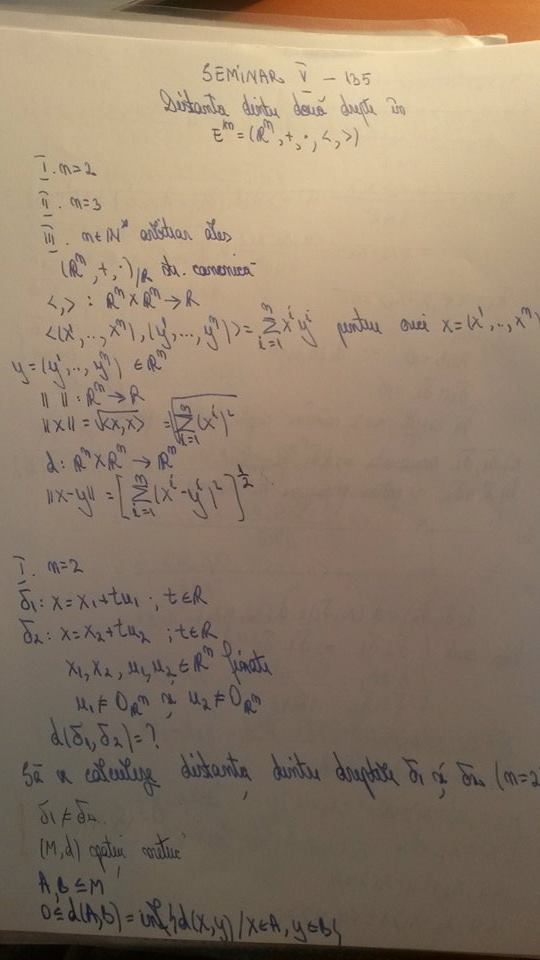 SEMINAR V - 135
Distanta dintre două drepte în
Eᵐ = (Rⁿ, +, ·, <, >)
I. n=2
II. n=3
III. n∈N* arbitrar ales
(Rⁿ, +, ·)/R str. canonică
<, > : Rⁿ×Rⁿ → R
<(x¹,..,xⁿ), (y¹,...,yⁿ)> = ∑ⁿᵢ₌₁ xⁱyⁱ pentru orici x=(x¹,..,xⁿ)
y=(y¹,..,yⁿ) ∈Rⁿ
|| || : Rⁿ → R
||x|| = √<x,x> = √∑ⁿᵢ₌₁ (xⁱ)²
d: Rⁿ×Rⁿ → Rⁿ
||x-y|| = [∑ⁿᵢ₌₁ (xⁱ-yⁱ)²]^½
I. n=2
δ₁: x=x₁+tu₁ ; t∈R
δ₂: x=x₂+tu₂ ; t∈R
x₁,x₂,u₁,u₂∈Rⁿ fixate
u₁≠0Rⁿ și u₂≠0Rⁿ
d(δ₁,δ₂)=?
Să se calculeze distanța dintre dreptele δ₁ și δ₂ (n=2
δ₁≠δ₂.
(M,d) spațiu metric
A,B⊆M
0≤d(A,B)=inf{d(x,y)/x∈A,y∈B}